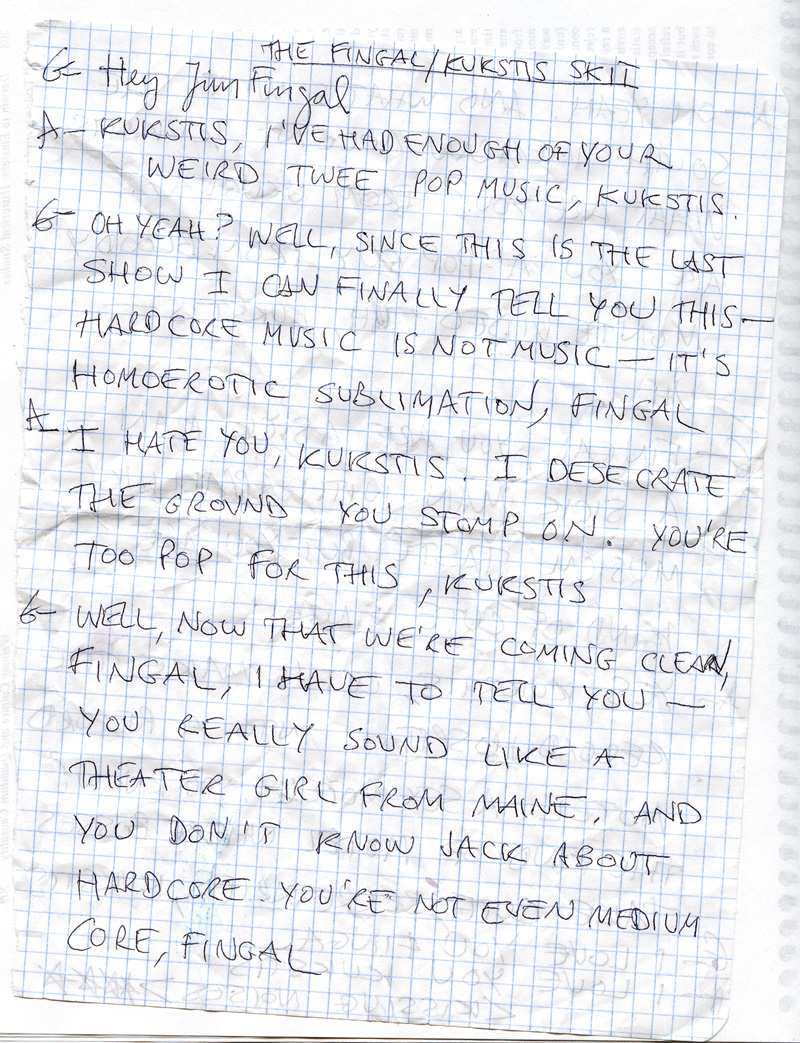 THE FINGAL/KUKSTIS SKIT
G- Hey Jim Fingal
A- KUKSTIS, I'VE HAD ENOUGH OF YOUR
WEIRD TWEE POP MUSIC, KUKSTIS.
G- OH YEAH? WELL, SINCE THIS IS THE LAST
SHOW I CAN FINALLY TELL YOU THIS—
HARDCORE MUSIC IS NOT MUSIC — IT'S
HOMOEROTIC SUBLIMATION, FINGAL
A- I HATE YOU, KUKSTIS. I DESECRATE
THE GROUND YOU STOMP ON. YOU'RE
TOO POP FOR THIS, KUKSTIS
G- WELL, NOW THAT WE'RE COMING CLEAN,
FINGAL, I HAVE TO TELL YOU —
YOU REALLY SOUND LIKE A
THEATER GIRL FROM MAINE. AND
YOU DON'T KNOW JACK ABOUT
HARDCORE. YOU'RE NOT EVEN MEDIUM
CORE, FINGAL